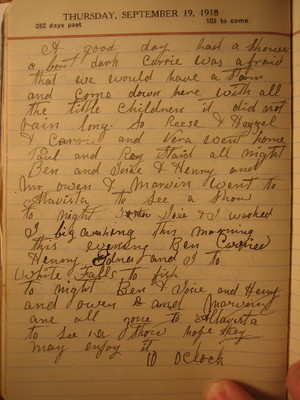 THURSDAY, SEPTEMBER 19, 1918
262 days past 103 to come
A good day had a shower
a bout dark Carrie was afraid
that we would have a storm
and come down here with all
the little children it did not
rain long. So Reese & Hazzel
& Carrie and Vera went home
Paul and Roy Staid all night
Ben and Josie & Henny and
Mr owen & Marvin went to
Altavista to see a show
to night Josie & I washed
A big washing this morning
this evening Ben Carried
Henny Edner and I to
White Falls to fish
to night Ben & Josie and Henny
and owen & Marvin
are all gone to Altavista
to see a show hope they
may enjoy it
10 Oclock